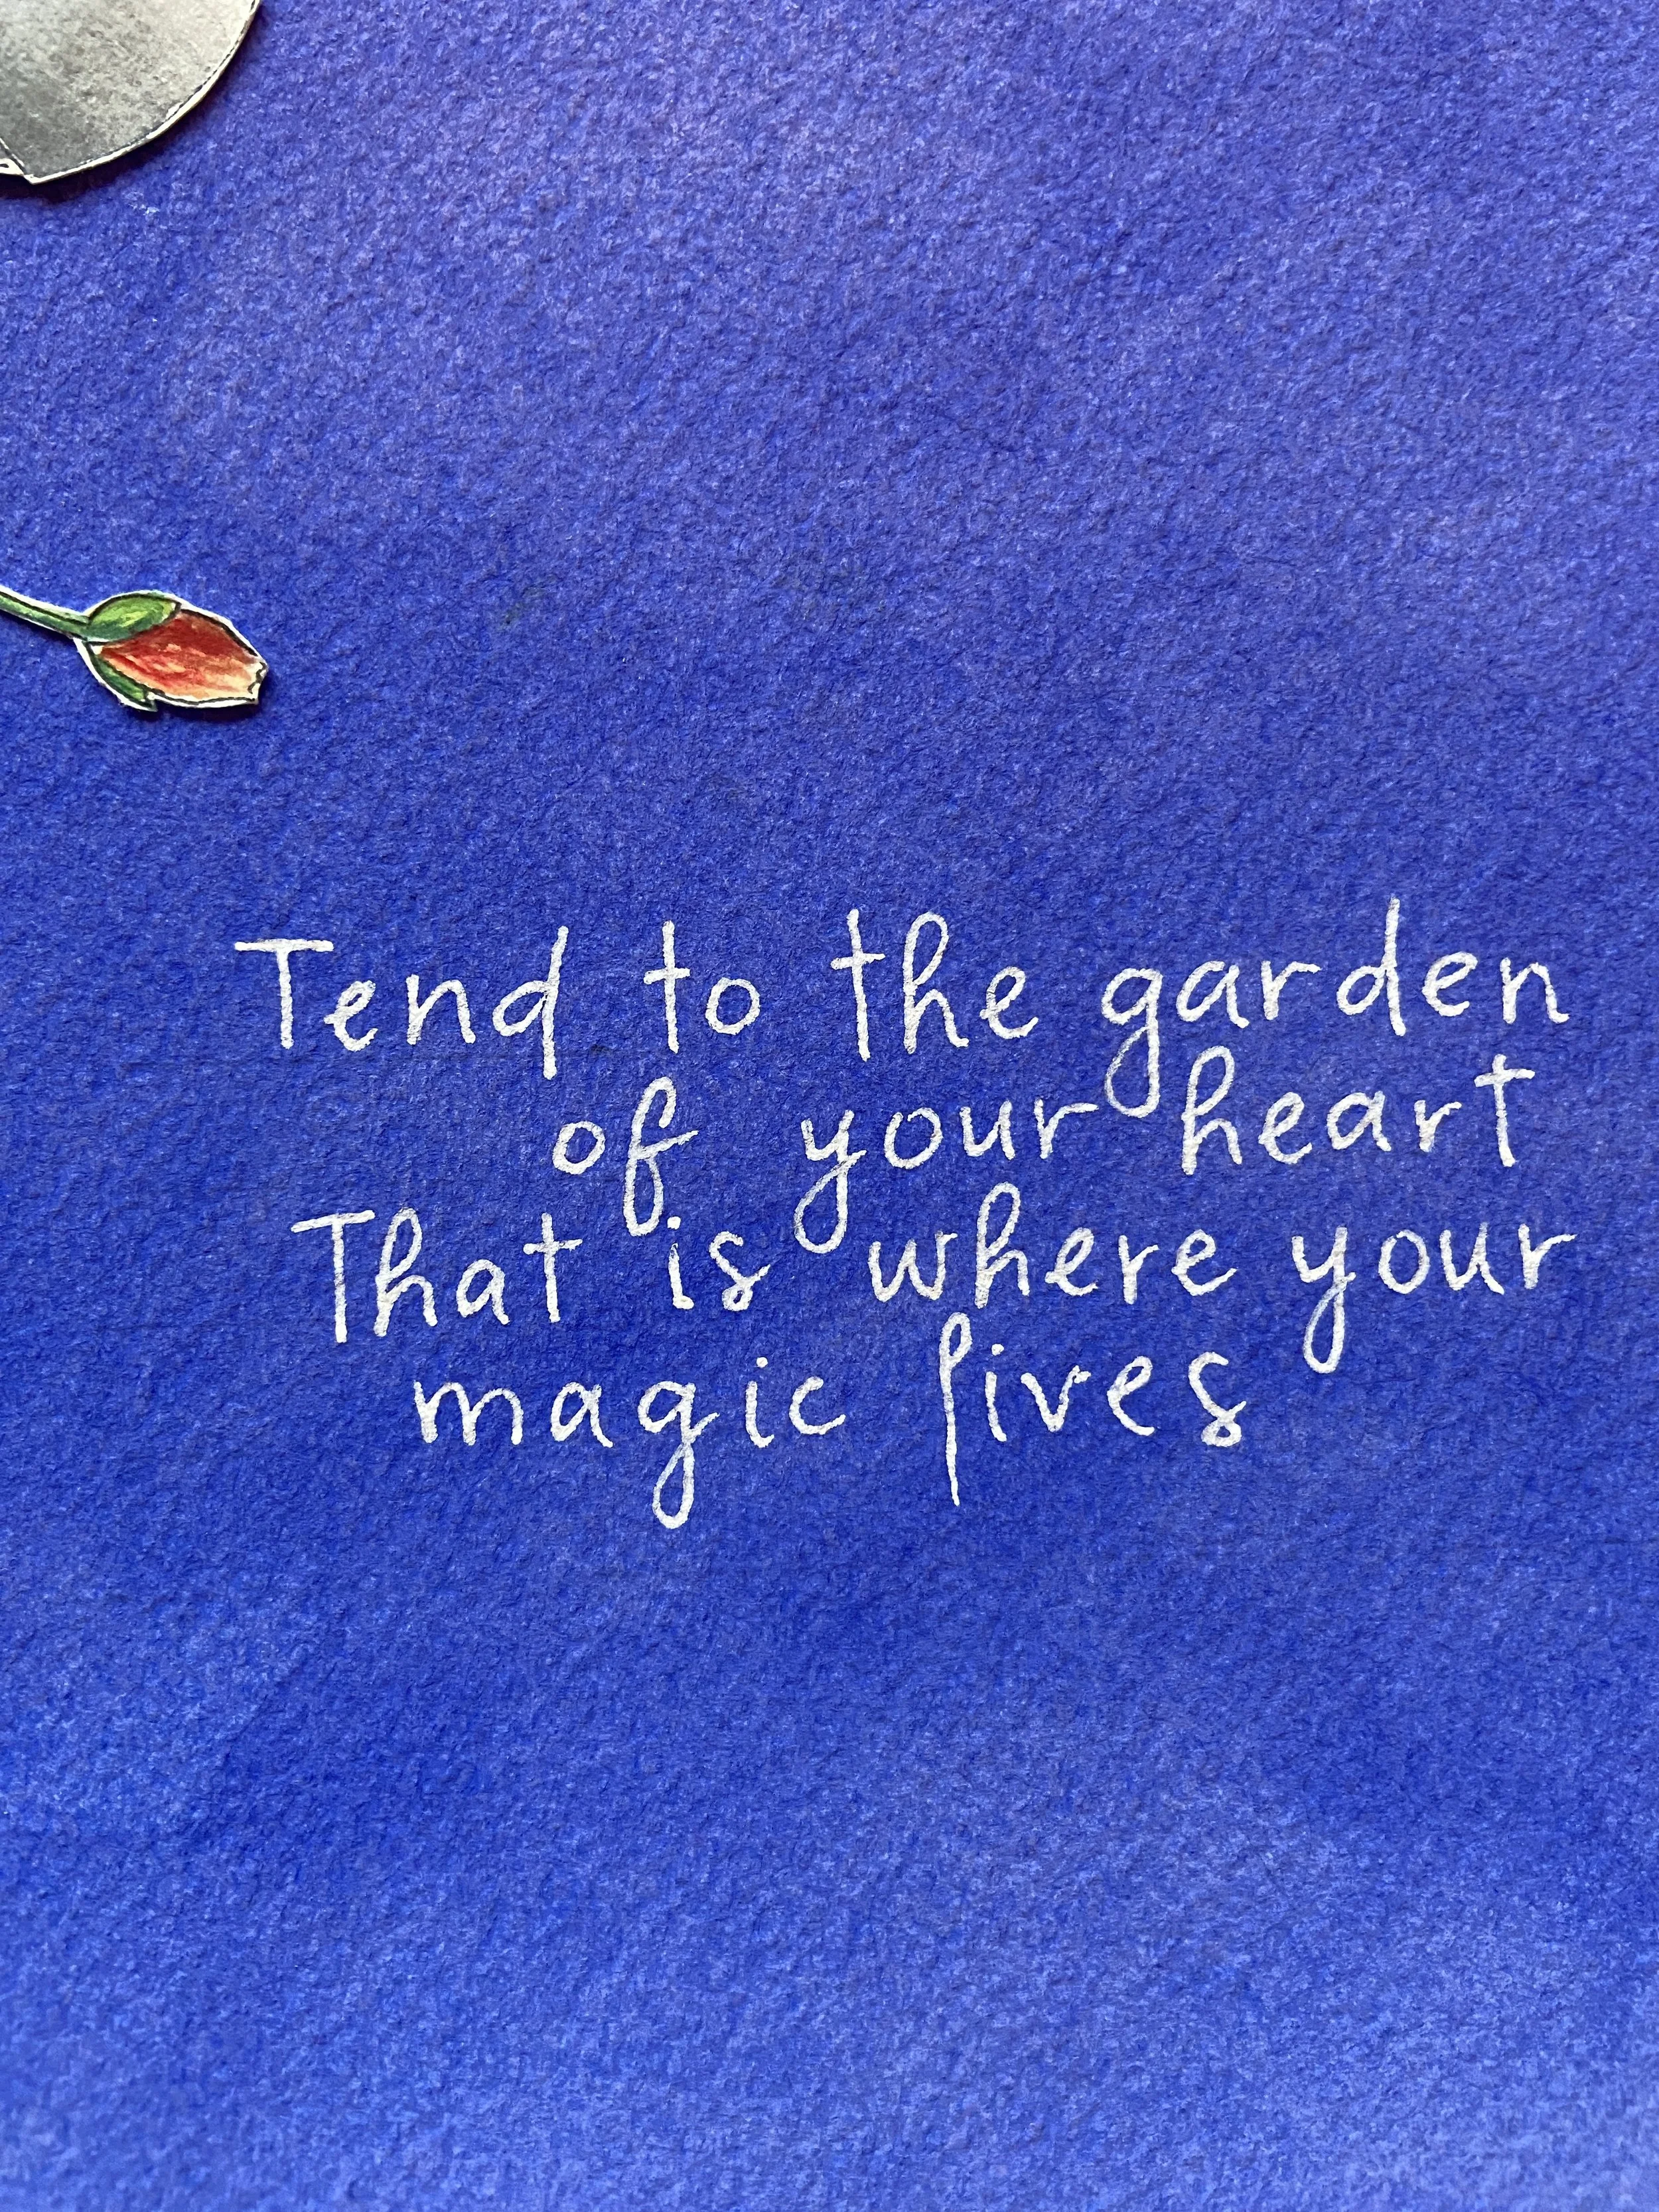 Tend to the garden
of your heart
That is where your
magic lives